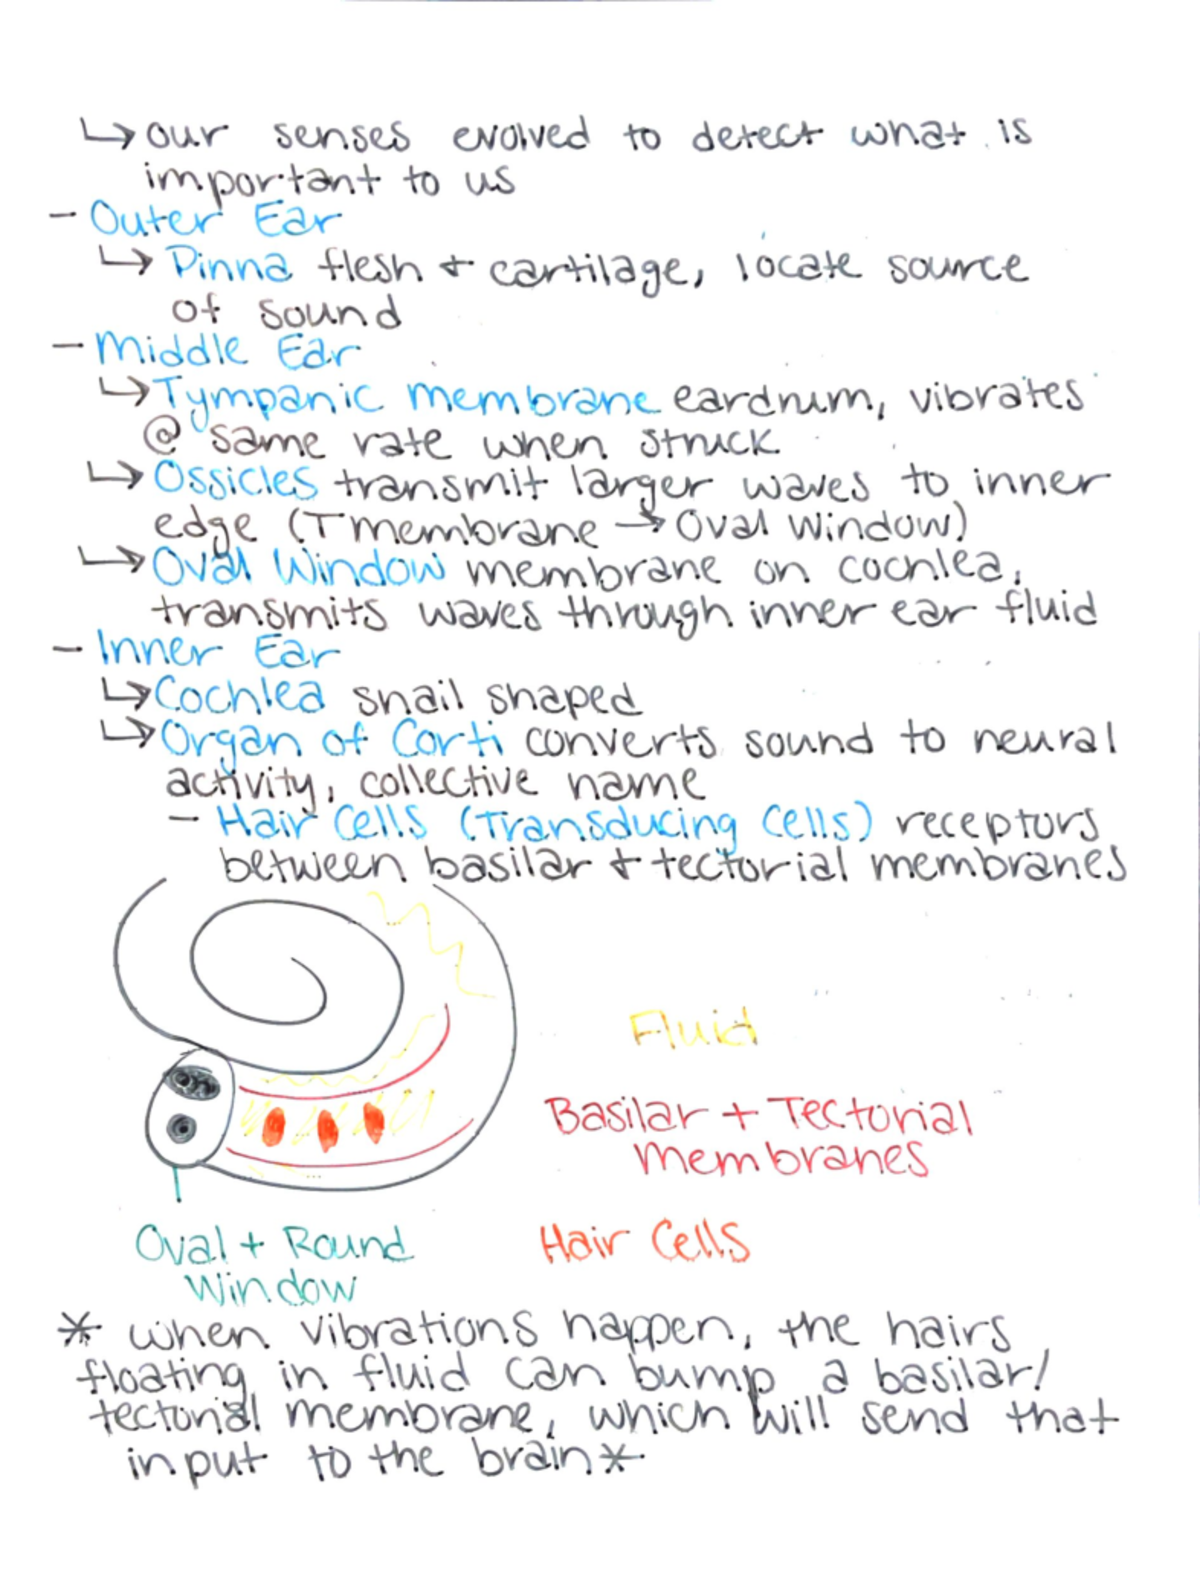 ↳ our senses evolved to detect what is
important to us
- Outer Ear
↳ Pinna flesh + cartilage, locate source
of sound
- Middle Ear
↳ Tympanic membrane eardrum, vibrates
@ same rate when struck
↳ Ossicles transmit larger waves to inner
edge (T membrane → Oval Window)
↳ Oval Window membrane on cochlea,
transmits waves through inner ear fluid
- Inner Ear
↳ Cochlea snail shaped
↳ Organ of Corti converts sound to neural
activity, collective name
- Hair Cells (Transducing Cells) receptors
between basilar + tectorial membranes
Fluid
Basilar + Tectorial
Membranes
Oval + Round
Window
Hair Cells
* when vibrations happen, the hairs
floating in fluid can bump a basilar/
tectorial membrane, which will send that
input to the brain *